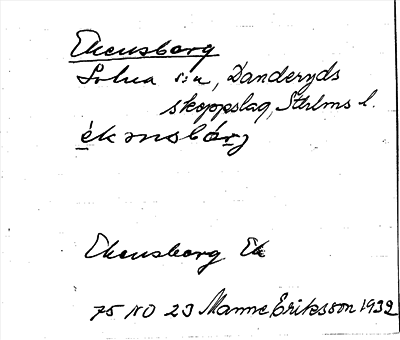 Ekensberg
Solna sn, Danderyds
skeppslag, Sthlms l.
ékənsbärj
Ekensberg Ek
75 NO 23 Manne Eriksson 1932